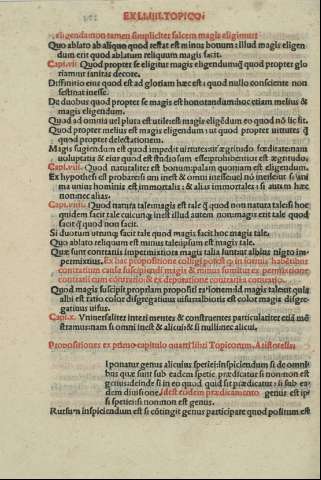 EX LI.IIII.TOPICOꝜ
eligenda: non tamen simpliciter saltem magis eligimus
Quo ablato ab aliquo quod restat est minus bonum: illud magis eligen
dum erit quod ablatum reliquum magis facit.
Capi.vii Quod propter se eligitur magis eligendumq̃ quod propter glo
riam: ut sanitas decore.
Diffinitio eius quod est ad gloriam hæc est: quod nullo consciente non
festinat inesse.
De duobus quod propter se magis est honorandum: hoc etiam melius &
magis eligendum.
Quod ad omnia uel plura est utile: est magis eligēdum eo quod nō sic fit.
Quod propter melius est magis eligendum: ut quod propter uirtutes q̃
quod propter delectationem.
Magis fugiendum est quod impedit uirtutes: ut ægritudo. fœditatenam
uoluptatis & eius quod est studiosum esse prohibentior est ægritudo.
Capi.viii. Quod naturaliter est bonum: palam quoniam est eligendum.
Ex hypothesi est probare: si uni inest & omni inesse: uel non inesse: ut si ani
ma unius hominis est immortalis: & alias immortales: si autem hæc
non: nec alias.
Capi.viiii. Quod natura tale: magis est tale q̃ quod non natura tale: si hoc
quidem facit tale cuicunq̃ inest illud autem non: magis erit tale quod
facit q̃ quod non facit.
Si duorum utrunq̃ facit tale quod magis facit hoc magis tale.
Quo ablato reliquum est minus tale: ipsum est magis tale.
Quæ sunt contrariis impermixtiora magis talia sunt: ut albius nigro im-
permixtius. Ex hac propositione colligi potest q̃ in formis habentibus
contrarium causa suscipiendi magis & minus sumitur ex permixtione
contrarii cum contrario: & ex depuratione contrarii a contrario.
Quod magis suscipit propriam propositi rationem: id magis tale: ut quia
albi est ratio color disgregatiuus uisus: albior is est color magis disgre-
gatiuus uisus.
Capi.x. Vniuersaliter interimentes & construentes particulariter eua mō
stramus: nam si omni inest & alicui: & si nulli: nec alicui.
Propositiones ex primo capitulo quarti libri Topicorum. Aristotelis.
I ponatur genus alicuius speciei: inspiciendum si de omni
bus quæ sunt sub eadem specie prædicatur: si non: non est
genus: deinde si in eo quod quid sit prædicatur: si sub ea-
dem diuisione. idest eodem prædicamento genus est ip
si speciei: si non: non est genus.
Rursum inspiciendum est si cōtingit genus participare quod positum est